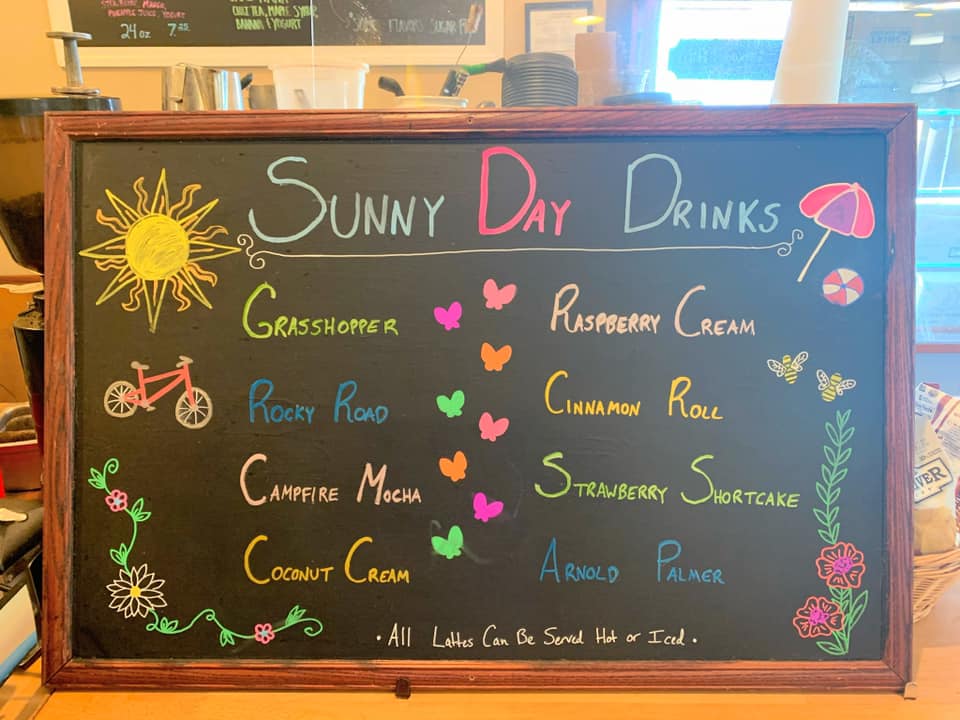 PINEAPPLE JUICE, YOGURT
24oz 7.25
CHAI TEA, MAPLE SYRUP
BANANA & YOGURT
FLAVORS SUGAR FREE
SUNNY DAY DRINKS
GRASSHOPPER
ROCKY ROAD
CAMPFIRE MOCHA
COCONUT CREAM
RASPBERRY CREAM
CINNAMON ROLL
STRAWBERRY SHORTCAKE
ARNOLD PALMER
• All Lattes Can Be Served Hot or Iced •